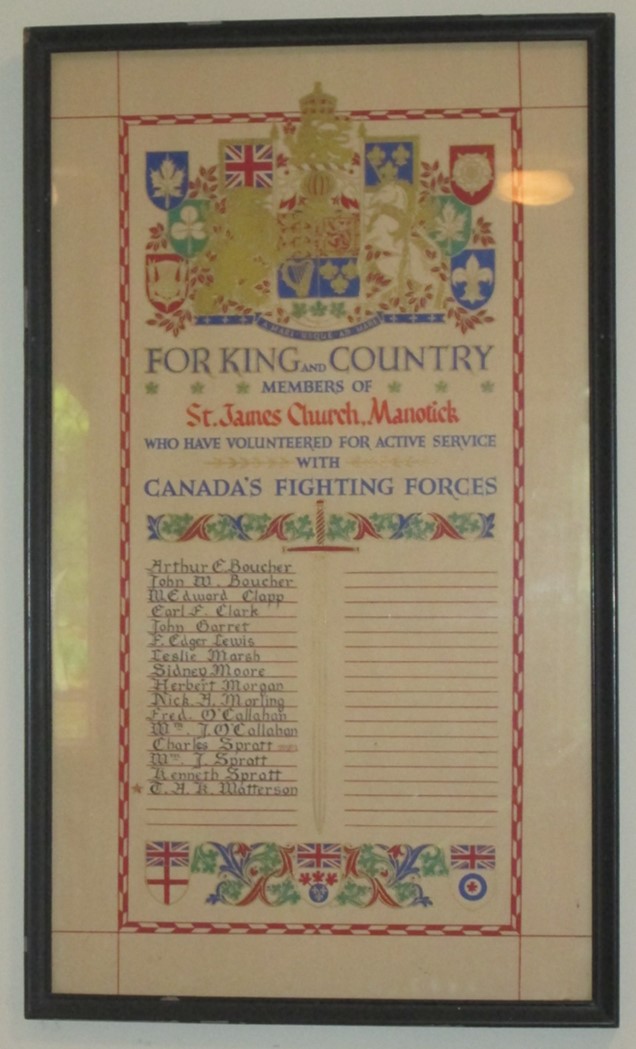 A MARI USQUE AD MARE
FOR KING AND COUNTRY
MEMBERS OF
St. James Church, Manotick
WHO HAVE VOLUNTEERED FOR ACTIVE SERVICE
WITH
CANADA'S FIGHTING FORCES
Arthur E. Boucher
John W. Boucher
W. Edword Clapp
Earl F. Clark
John Garret
F. Edger Lewis
Leslie Marsh
Sidney Moore
Herbert Morgan
Nick A. Morling
Fred. O'Callahan
Wm. J. O'Callahan
Charles Spratt
Wm. J. Spratt
Kenneth Spratt
T. A. K. Watterson